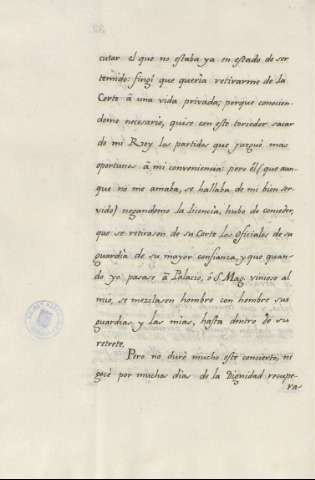 cutar el que no estaba ya en estado de ser
temido: fingí que queria retirarme de la
Corte à una vida privada; porque conocien-
dome necesario, quise con este torcedor sacar
de mi Rey los partidos que juzgué mas
oportunos à mi conveniencia: pero él (que aun-
que no me amaba, se hallaba de mi bien ser-
vido) negandome la licencia, hubo de conceder,
que se retirasen de su Corte los oficiales de su
guardia de su mayor confianza, y que quan-
do yo pasase à Palacio, ó S. Mag. viniese al
mio, se mezclasen hombre con hombre sus
guardias y las mias, hasta dentro de su
retrete.
Pero no duró mucho este concierto, ni
gocé por muchos dias de la Dignidad recupe-
ra-